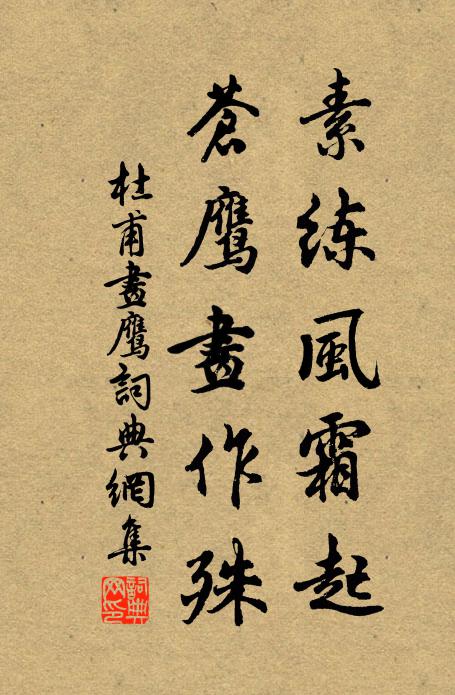 素練風霜起
蒼鷹畫作殊
杜甫畫鷹詞典網集
詞典网印